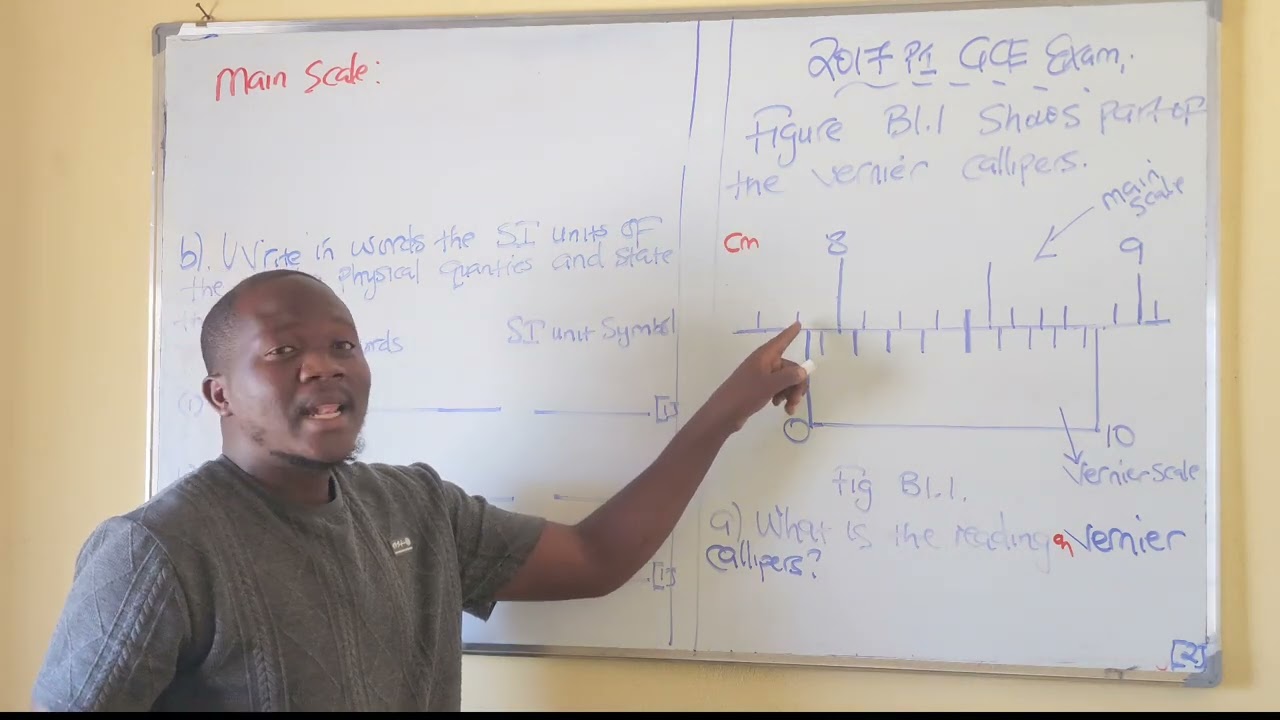 Main Scale:
b). Write in words the SI units OF
the physical quanties and state
SI unit Symbol
(i)
[1]
[1]
2017 P1 GCE Exam.
Figure B1.1 Shows part of
the vernier callipers.
main
scale
cm
8
9
0
10
Vernier scale
Fig B1.1.
a) What is the reading on Vernier
callipers?
[2]